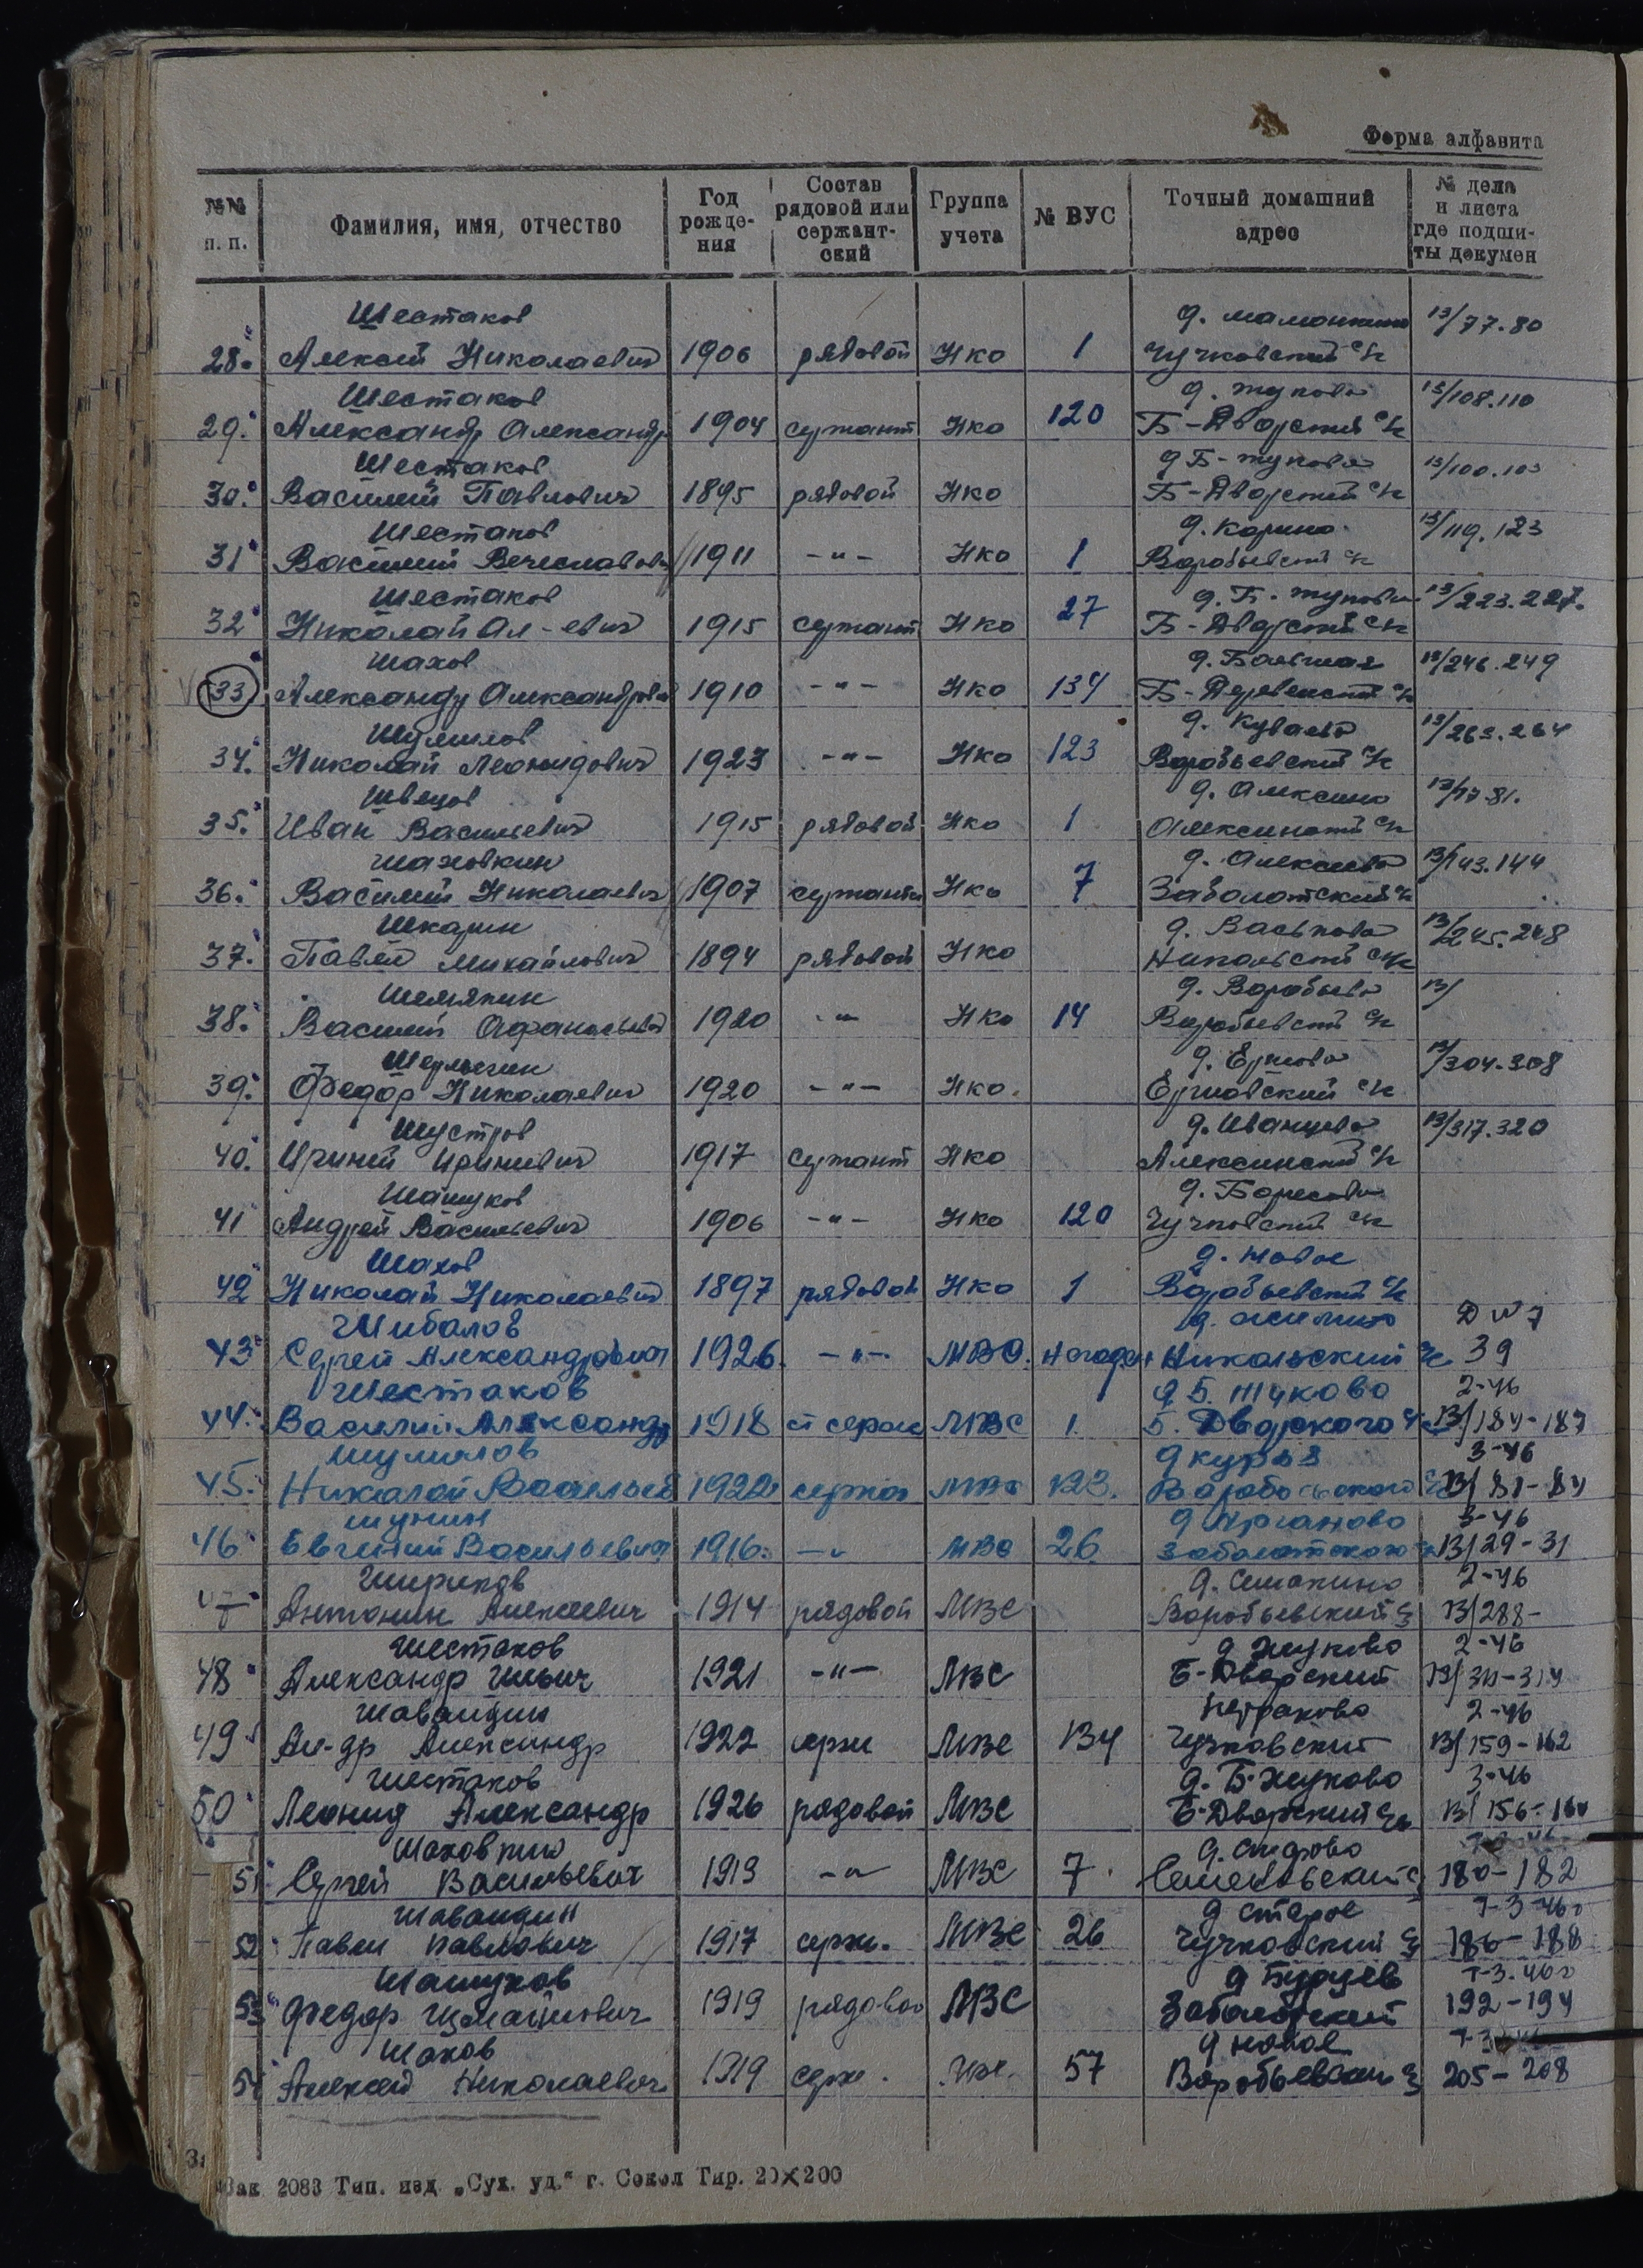 Форма алфавита
№№ п. п. Фамилия, имя, отчество Год рождения Состав рядовой или сержантский Группа учета № ВУС Точный домашний адрес № дела и листа где подшиты докумен
Шестаков д. 13/77.80
28. Алексей Николаевич 1906 рядовой Нко 1 Чучковский с/с
Шестаков д. Жуково 13/108.110
29. Александр Александр 1904 сержант Нко 120 Б-Дворский с/с
Шестаков д Б-Жуково 13/100.103
30. Василий Павлович 1895 рядовой Нко Б-Дворский с/с
Шестаков д. Карино 13/119.123
31 Василий Вечеславов 1911 -"- Нко 1 Воробьевский с/с
Шестаков д. Б. Жуково 13/223.227.
32 Николай Ал-евич 1915 сержант Нко 27 Б-Дворский с/с
Шахов д. Большая 13/246.249
33 Александр Александрович 1910 -"- Нко 134 Б-Деревенский с/с
Шумилов д. 13/263.264
34. Николай Леонидович 1923 -"- Нко 123 Воробьевский с/с
Швецов д. Алексино 13/77-81.
35. Иван Васильевич 1915 рядовой Нко 1 Алексинский с/с
Шаховкин д. 13/143.144
36. Василий Николаевич 1907 сержант Нко 7 Заболотский с/с
Шкарин д. Васьково 13/245.248
37. Павел Михайлович 1894 рядовой Нко Никольский с/с
Шемякин д. Воробьево 13/
38. Василий Афанасьевич 1920 -"- Нко 14 Воробьевский с/с
д. Ершово 13/304.308
39. Федор Николаевич 1920 -"- Нко. Ершовский с/с
Шустров д. Иванцево 13/317.320
40. Ириней Иринеевич 1917 сержант Нко Алексинский с/с
Шашуков д. Борисово
41 Андрей Васильевич 1906 -"- Нко 120 Чучковский с/с
Шахов д. Новое
42 Николай Николаевич 1897 рядовой Нко 1 Воробьевский с/с
Шибалов д. Д № 7
43 Сергей Александрович 1926. -"- МВС. Никольский с/с 39
Шестаков д Б. Жуково 2-46
44. Василий Александр 1918 ст серж МВС 1. Б. Дворского с/с 13/184-187
Шумилов д 3-46
45. Николай Васильев 1922 сержа МВС 123. Воробьевского с/с 13/81-84
Шунин д 3-46
46 Евгений Васильевич 1916. -"- МВС 26 Заболотского с/с 13/29-31
Шириков д. Семакино 2-46
47 Антонин Алексеевич 1914 рядовой МВС Воробьевский с/с 13/288-
Шестаков д Жуково 2-46
48 Александр Ильич 1921 -"- МВС Б-Дворский 13/311-314
Шавандин Петраково 2-46
49 Ал-др Александр 1922 серж МВС 134 Чучковский 13/159-162
Шестаков д. Б-Жуково 3-46
50 Леонид Александр 1926 рядовой МВС Б-Дворский с/с 13/156-160
Шаховкин д.
51 Сергей Васильевич 1913 -"- МВС 7. 180-182
Шавандин д Старое Т-3-46г
52 Павел Павлович 1917 серж. МВС 26 Чучковский с/с 186-188
Шашуков д Бурцев Т-3.46г
53 Федор Измайлович 1919 рядовой МВС Заболотский 192-194
Шахов д Новое
54 Алексей Николаевич 1919 серж. МВС. 57 Воробьевский с/с 205-208
Зак 2083 Тип. изд „Сух. уд.“ г. Сокол Тир. 20×200